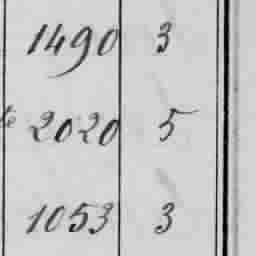 1490 3
te 2020 5
1053 3